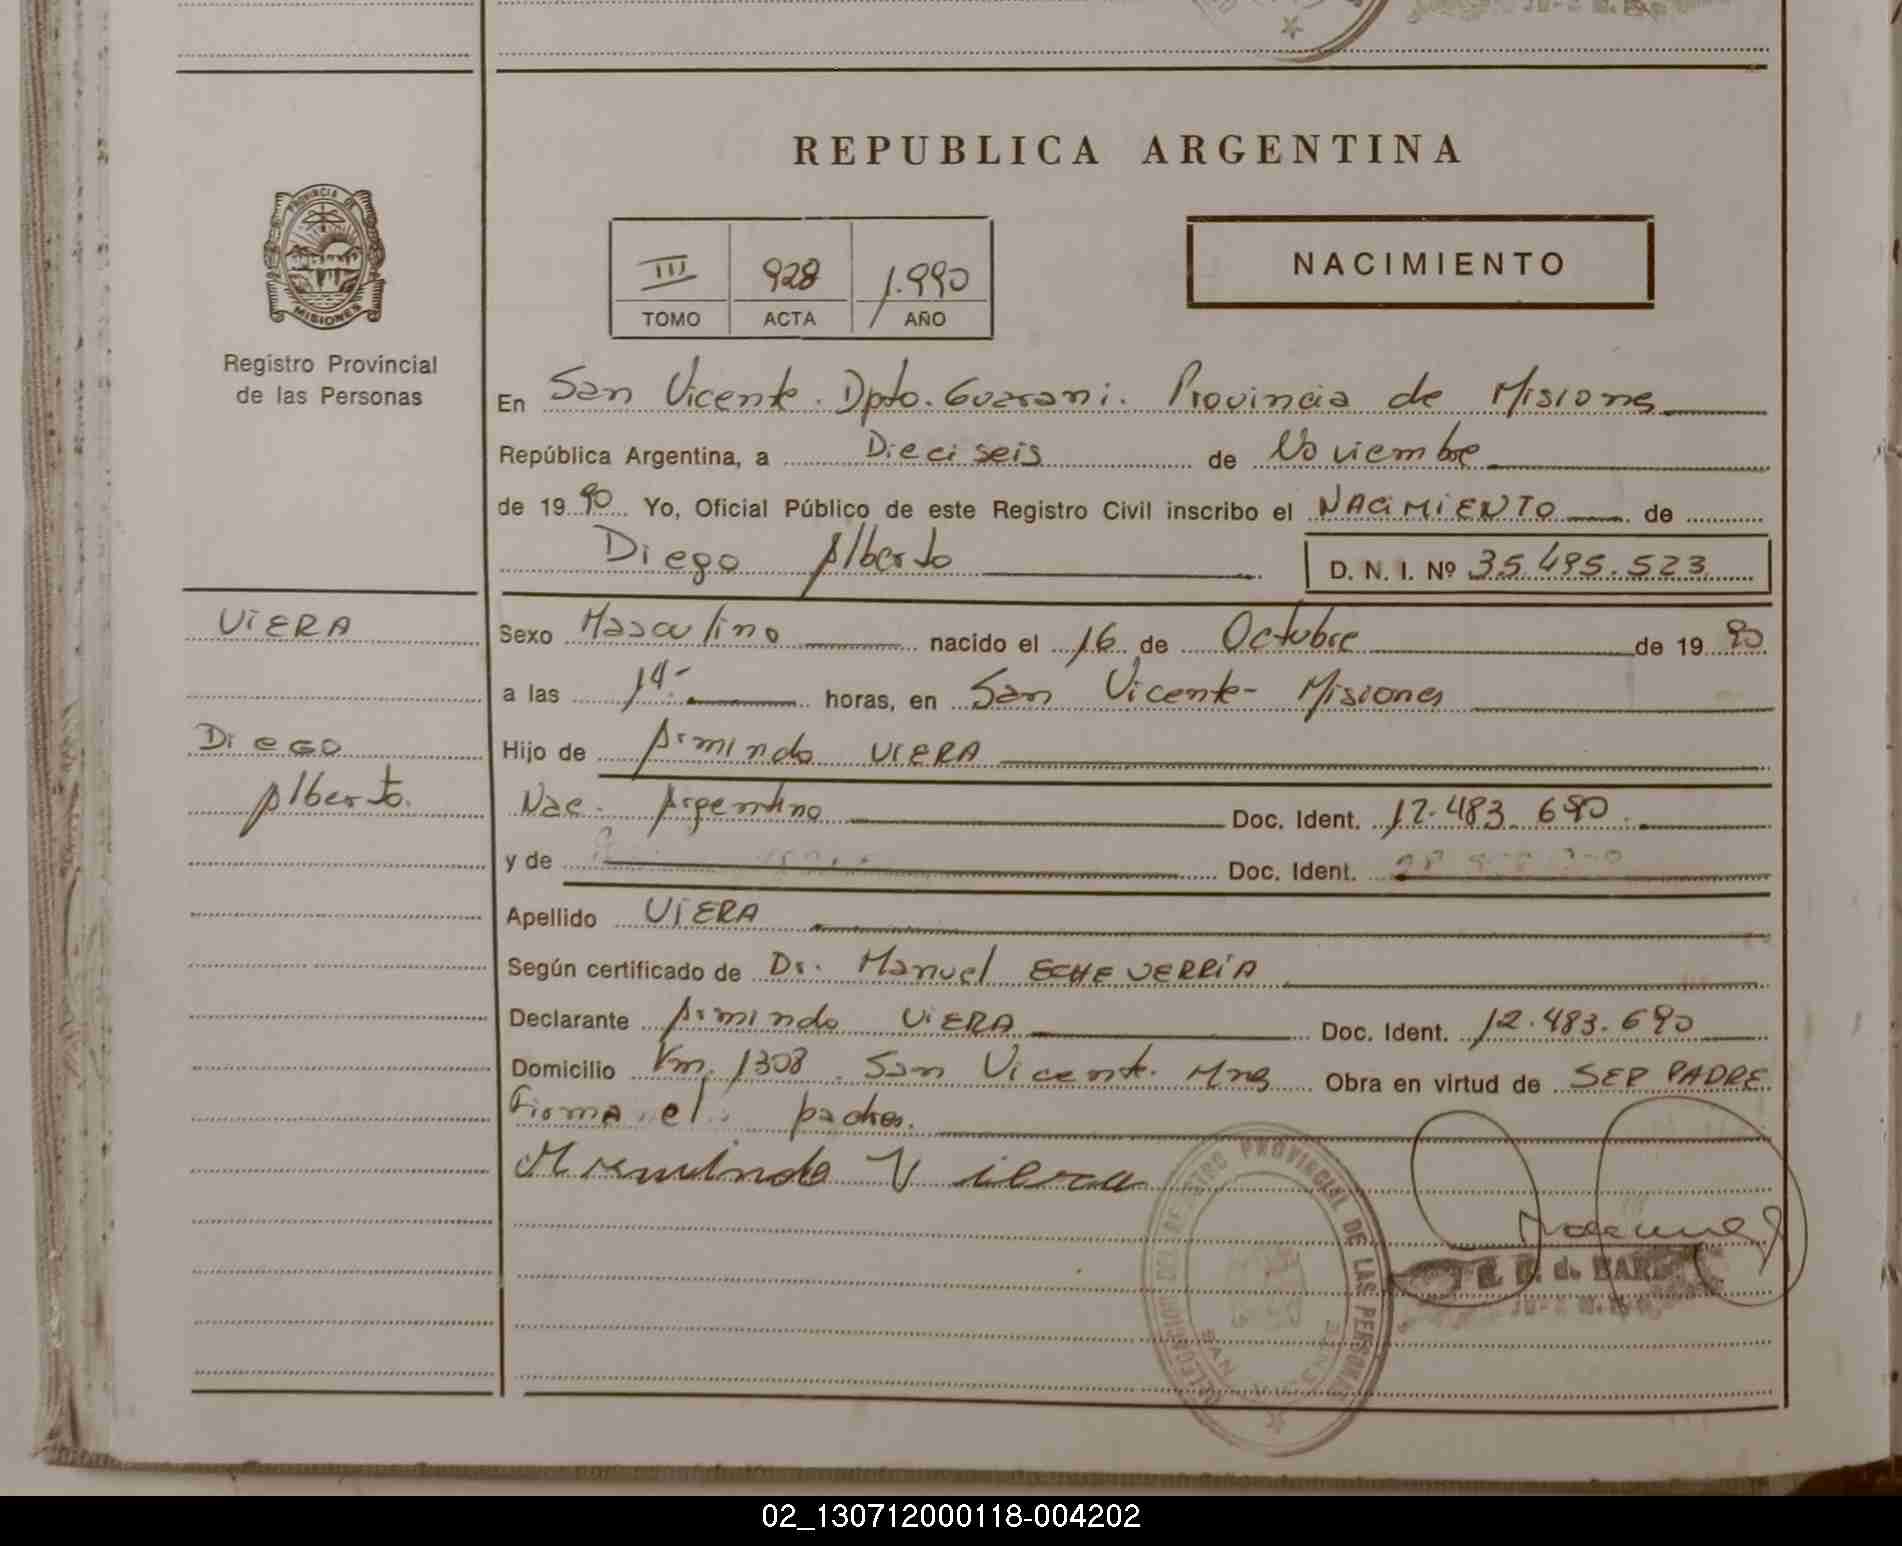 REPUBLICA ARGENTINA
PROVINCIA DE MISIONES
Registro Provincial
de las Personas
III 928 1.990
TOMO ACTA AÑO
NACIMIENTO
En San Vicente. Dpto. Guarani. Provincia de Misiones
República Argentina, a Dieciseis de Noviembre
de 1990 Yo, Oficial Público de este Registro Civil inscribo el NACIMIENTO de
Diego Alberto D. N. I. Nº 35.495.523
VIERA
Diego
Alberto.
Sexo Masculino nacido el 16 de Octubre de 1990
a las 14- horas, en San Vicente- Misiones
Hijo de Armindo VIERA
Nac. Argentino Doc. Ident. 12.483.690.
y de Doc. Ident.
Apellido VIERA
Según certificado de Dr. Manuel ECHEVERRÍA
Declarante Armindo VIERA Doc. Ident. 12.483.690
Domicilio Km. 1308. San Vicente. Mnes Obra en virtud de SER PADRE
Firma el padre.
Armindo Viera
PROVINCIAL DE LAS PERSONAS
SAN VICENTE
02_130712000118-004202